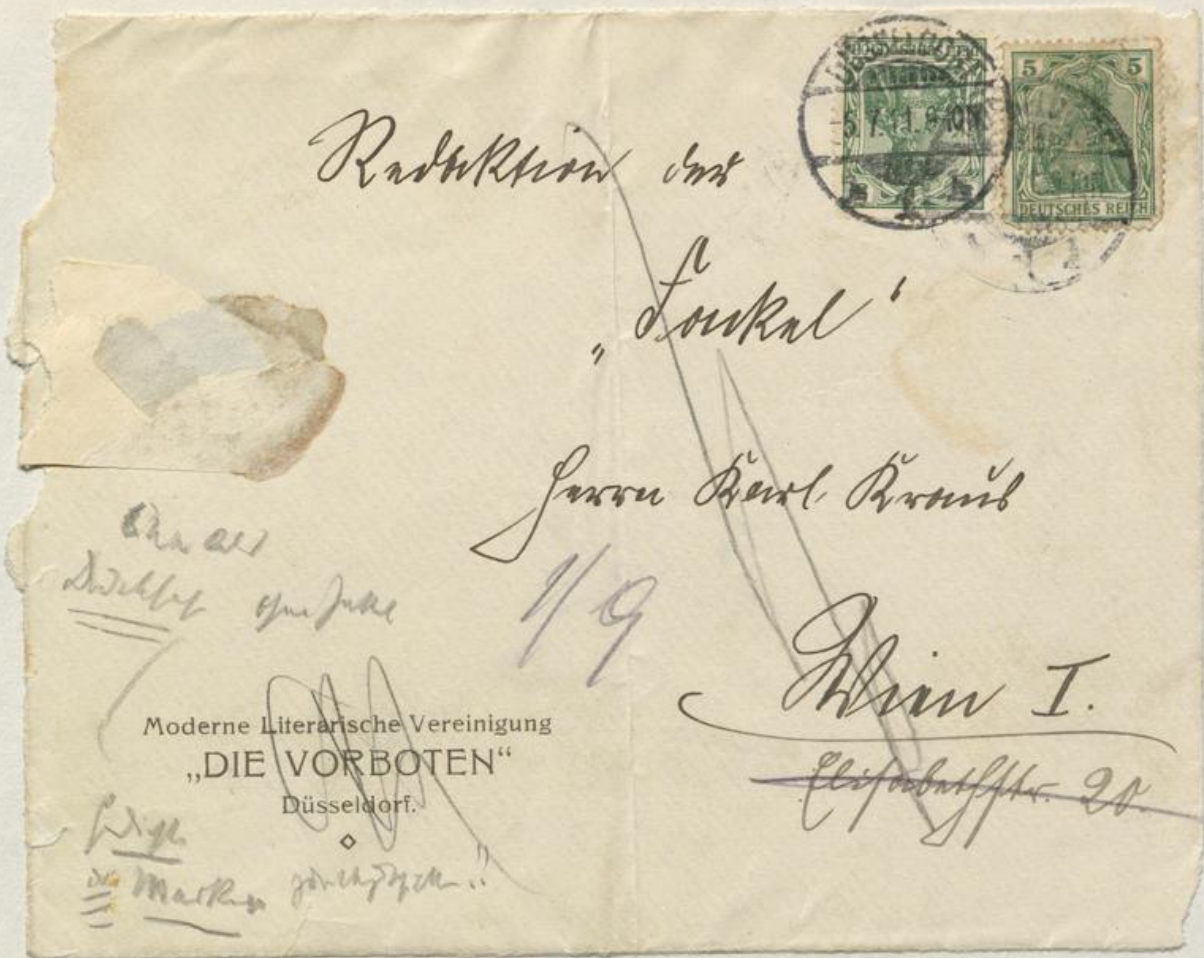 DÜSSELDORF
5.7.11. 9-10N
5 5
DEUTSCHES REICH
Redaktion der
„Fackel“
Herrn Karl Kraus
Wien I.
Elisabethstr. 20
Drucksache
1/9
Moderne Literarische Vereinigung
„DIE VORBOTEN“
Düsseldorf.
Marken